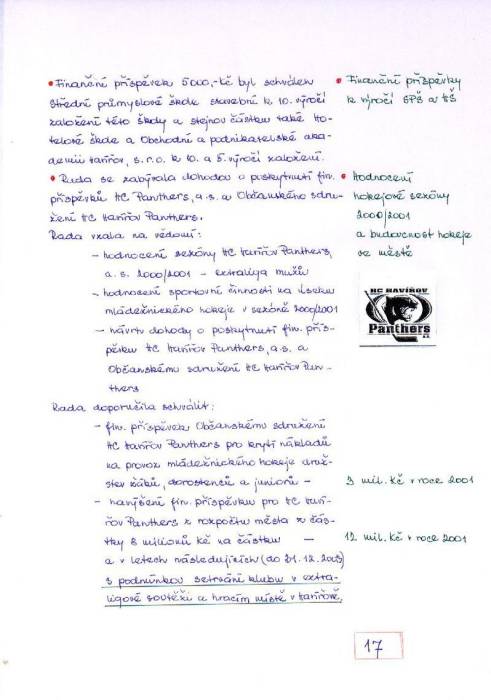 • Finanční příspěvek 5000,-Kč byl schválen
Střední průmyslové škole stavební k 10. výročí
založení této školy a stejnou částku také Ho-
telové škole a Obchodní a podnikatelské aka-
demii Havířov, s.r.o. k 10. a 5. výročí založení.
• Rada se zabývala dohodou o poskytnutí fin.
příspěvků HC Panthers, a.s. a Občanského sdru-
žení HC Havířov Panthers.
Rada vzala na vědomí:
- hodnocení sezóny HC Havířov Panthers,
a.s. 2000/2001 - extraliga mužů
- hodnocení sportovní činnosti na úseku
mládežnického hokeje v sezóně 2000/2001
- návrh dohody o poskytnutí fin. přís-
pěvku HC Havířov Panthers, a.s. a
Občanskému sdružení HC Havířov Pan-
thers
Rada doporučila schválit:
- fin. příspěvek Občanskému sdružení
HC Havířov Panthers pro krytí nákladů
na provoz mládežnického hokeje druž-
stev žáků, dorostenců a juniorů -
- navýšení fin. příspěvku pro HC Haví-
řov Panthers z rozpočtu města z čás-
tky 8 milionů Kč na částku -
a v letech následujících (do 31.12.2003)
s podmínkou setrvání klubu v extra-
ligové soutěži a hracím místě v Havířově.
• Finanční příspěvky
k výročí SPŠ a HŠ
• Hodnocení
hokejové sezóny
2000/2001
a budoucnost hokeje
ve městě
HC HAVÍŘOV
Panthers
3 mil. Kč v roce 2001
12 mil. Kč v roce 2001
17